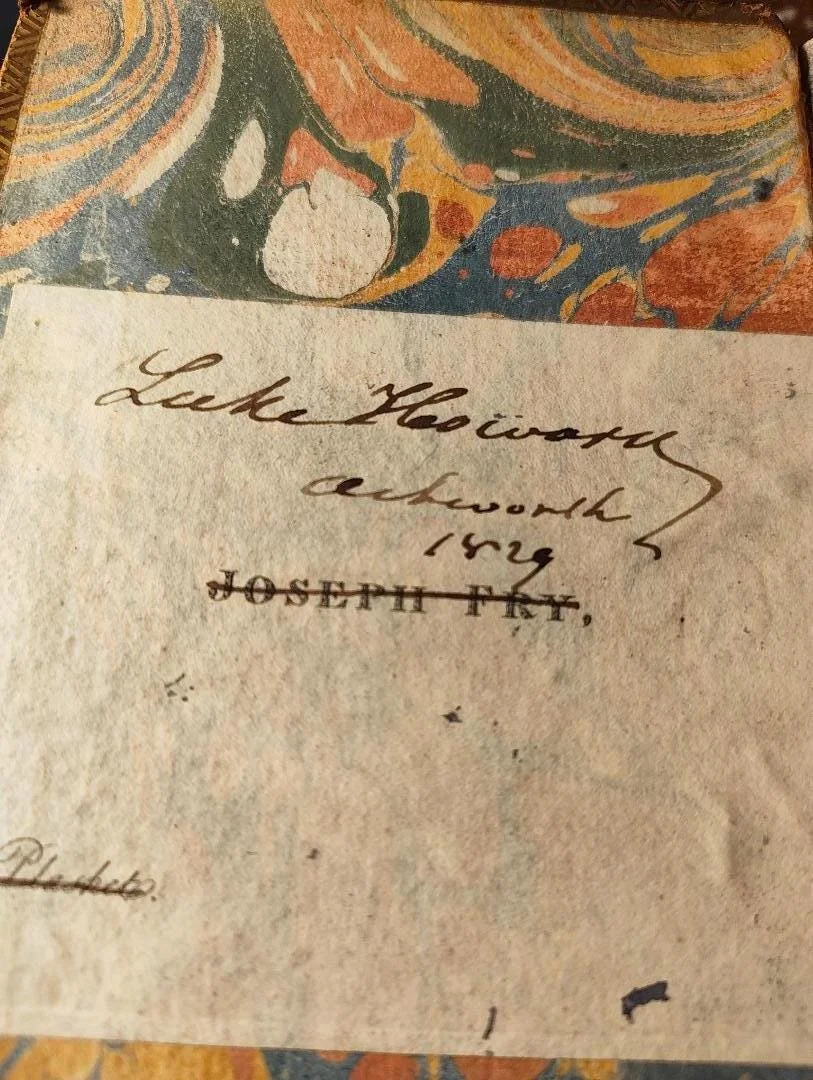 Luke Howard
Ackworth
1829
JOSEPH FRY,
Plashets.